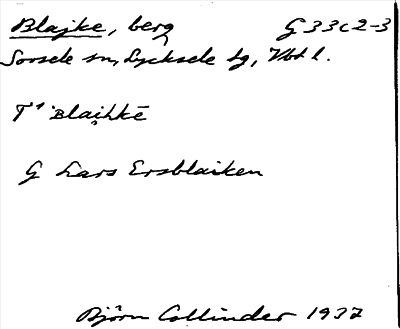 Blajke, berg G 33c2-3
Sorsele sn, Lycksele lg, Vbtl.
T¹ ˈBlai̭hkē
G Lars Ersblaiken
Björn Collinder 1937